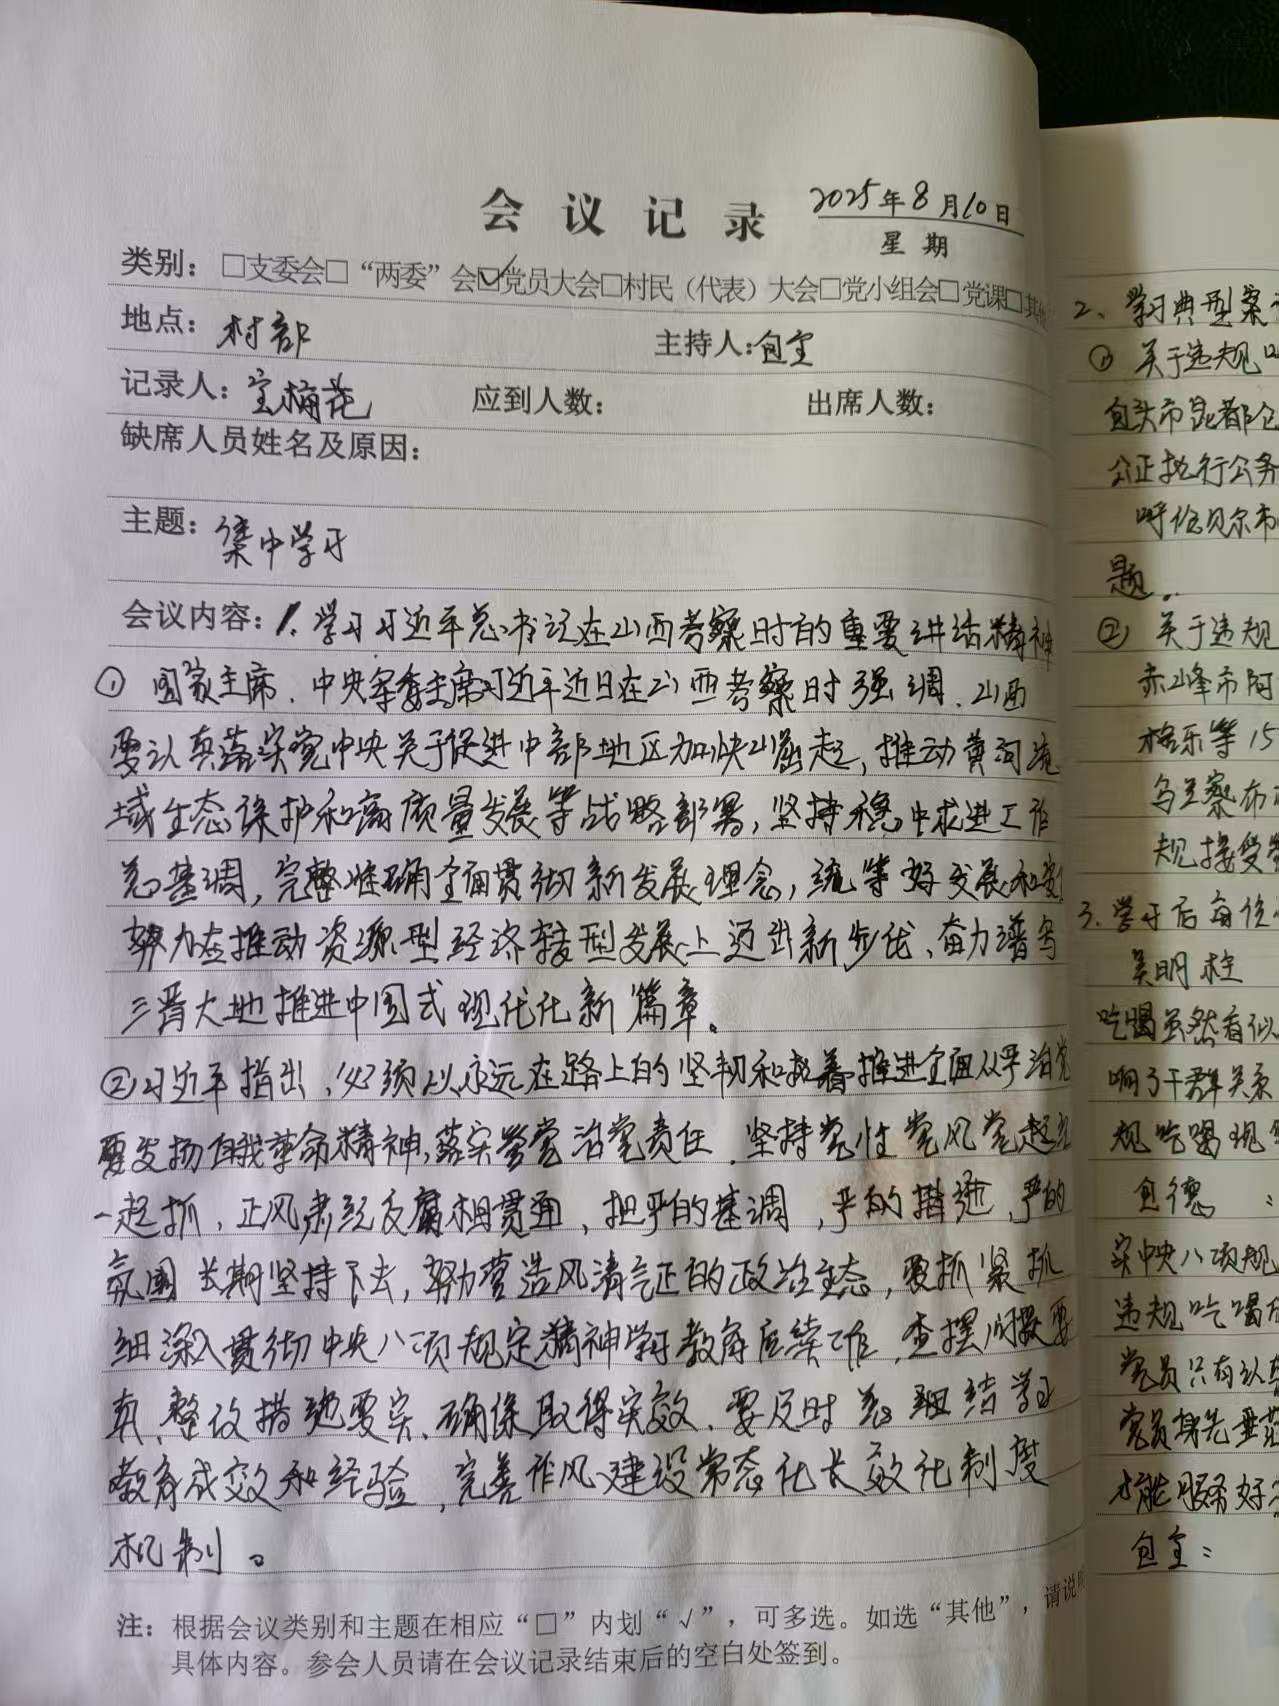 会议记录
2025年8月10日
星期
类别：□支委会□“两委”会☑党员大会□村民（代表）大会□党小组会□党课□其他
地点：村部 主持人：包宝
记录人：宝梅花 应到人数： 出席人数：
缺席人员姓名及原因：
主题：集中学习
会议内容：1.学习习近平总书记在山西考察时的重要讲话精神
① 国家主席、中央军委主席习近平近日在山西考察时强调、山西
要认真落实党中央关于促进中部地区加快崛起，推动黄河流
域生态保护和高质量发展等战略部署，坚持稳中求进工作
总基调，完整准确全面贯彻新发展理念，统筹好发展和安
努力在推动资源型经济转型发展上迈出新步伐、奋力谱写
三晋大地推进中国式现代化新篇章。
②习近平指出，必须以永远在路上的坚韧和执着推进全面从严治党
要发扬自我革命精神，落实管党治党责任．坚持党性党风党纪
一起抓，正风肃纪反腐相贯通，把严的基调，严的措施，严的
氛围长期坚持下去，努力营造风清气正的政治生态，要抓紧抓
细深入贯彻中央八项规定精神学习教育后续工作，查摆问题要
真、整改措施要实、确保取得实效、要及时总结学习
教育成效和经验，完善作风建设常态化长效化制度
机制。
注：根据会议类别和主题在相应“□”内划“√”，可多选。如选“其他”，请说明
具体内容。参会人员请在会议记录结束后的空白处签到。
2、学习典型案
① 关于违规
包头市昆都仑
公正执行公务
呼伦贝尔市
题。
② 关于违规
赤峰市阿
格乐等15
乌兰察布
规接受
3.学习后每位
吴明柱
吃喝虽然看似
响了干群关系
规吃喝现
包德：
实中央八项规
违规吃喝
党员只有认真
党员身先垂范
才能服务好
包宝：